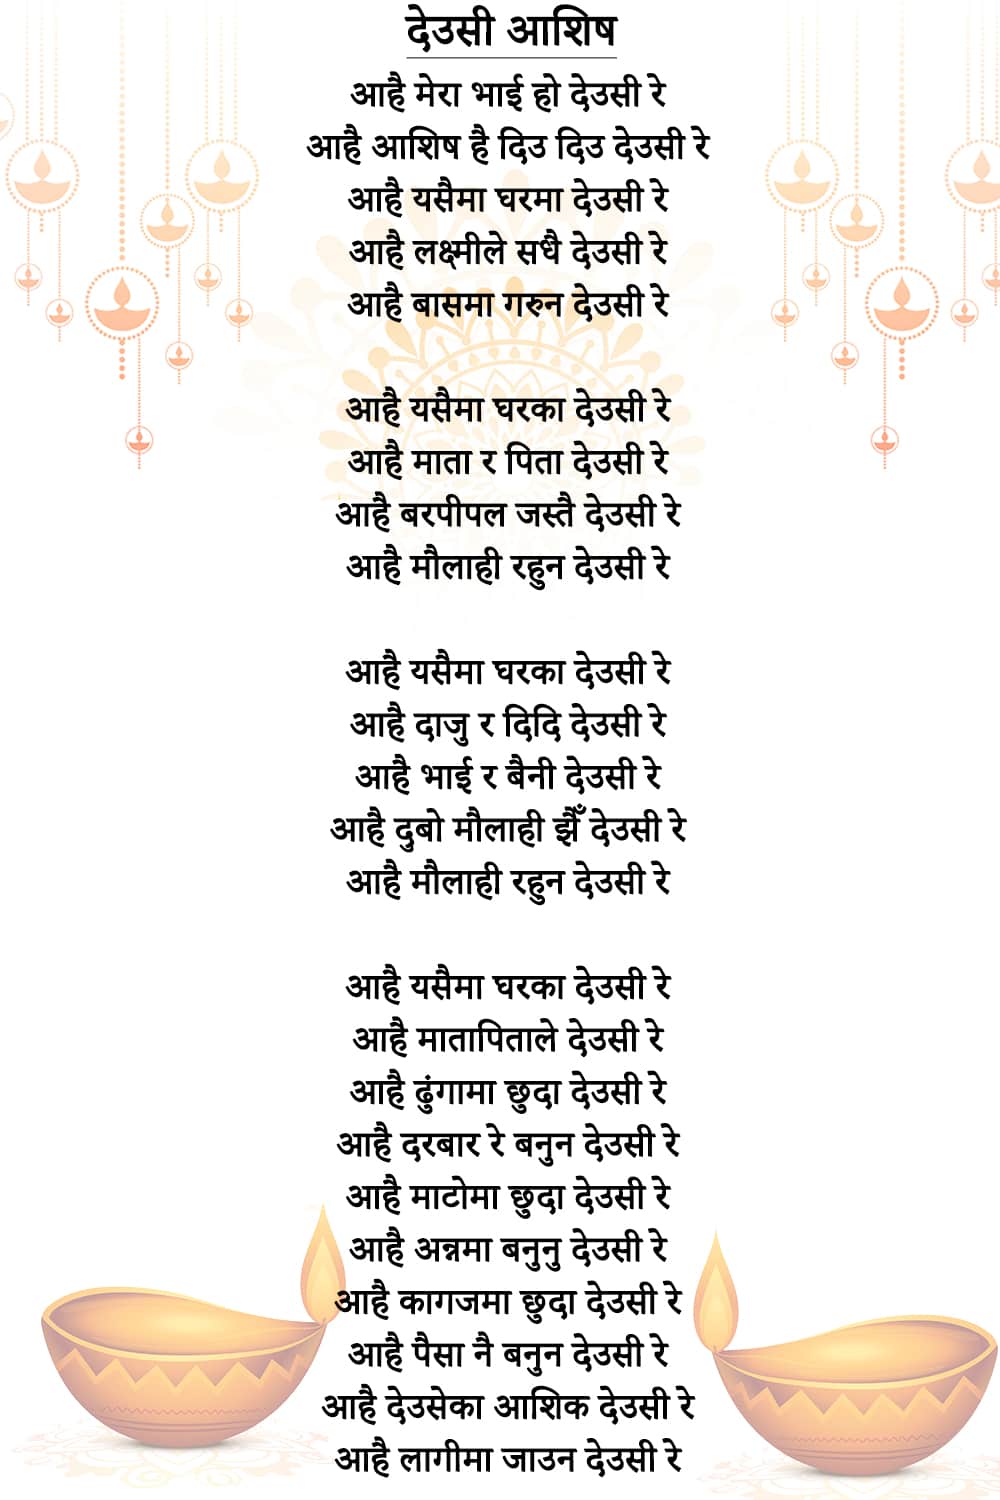 देउसी आशिष
आहै मेरा भाई हो देउसी रे
आहै आशिष है दिउ दिउ देउसी रे
आहै यसैमा घरमा देउसी रे
आहै लक्ष्मीले सधै देउसी रे
आहै बासमा गरुन देउसी रे
आहै यसैमा घरका देउसी रे
आहै माता र पिता देउसी रे
आहै बरपीपल जस्तै देउसी रे
आहै मौलाही रहुन देउसी रे
आहै यसैमा घरका देउसी रे
आहै दाजु र दिदि देउसी रे
आहै भाई र बैनी देउसी रे
आहै दुबो मौलाही झैँ देउसी रे
आहै मौलाही रहुन देउसी रे
आहै यसैमा घरका देउसी रे
आहै मातापिताले देउसी रे
आहै ढुंगामा छुदा देउसी रे
आहै दरबार रे बनुन देउसी रे
आहै माटोमा छुदा देउसी रे
आहै अन्नमा बनुनु देउसी रे
आहै कागजमा छुदा देउसी रे
आहै पैसा नै बनुन देउसी रे
आहै देउसेका आशिक देउसी रे
आहै लागीमा जाउन देउसी रे